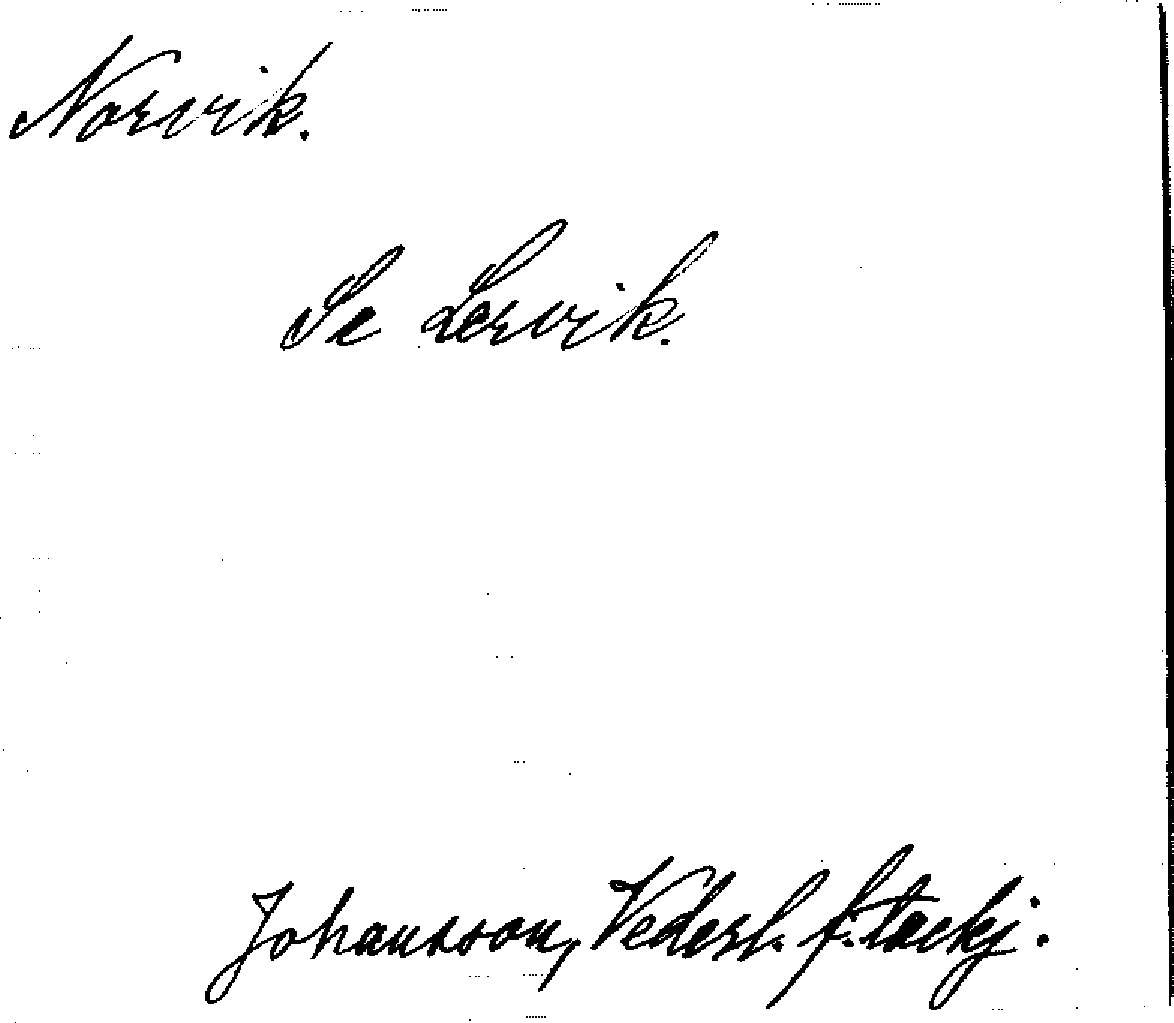 Norvik.
Se Lervik.
Johansson, Vedersl.